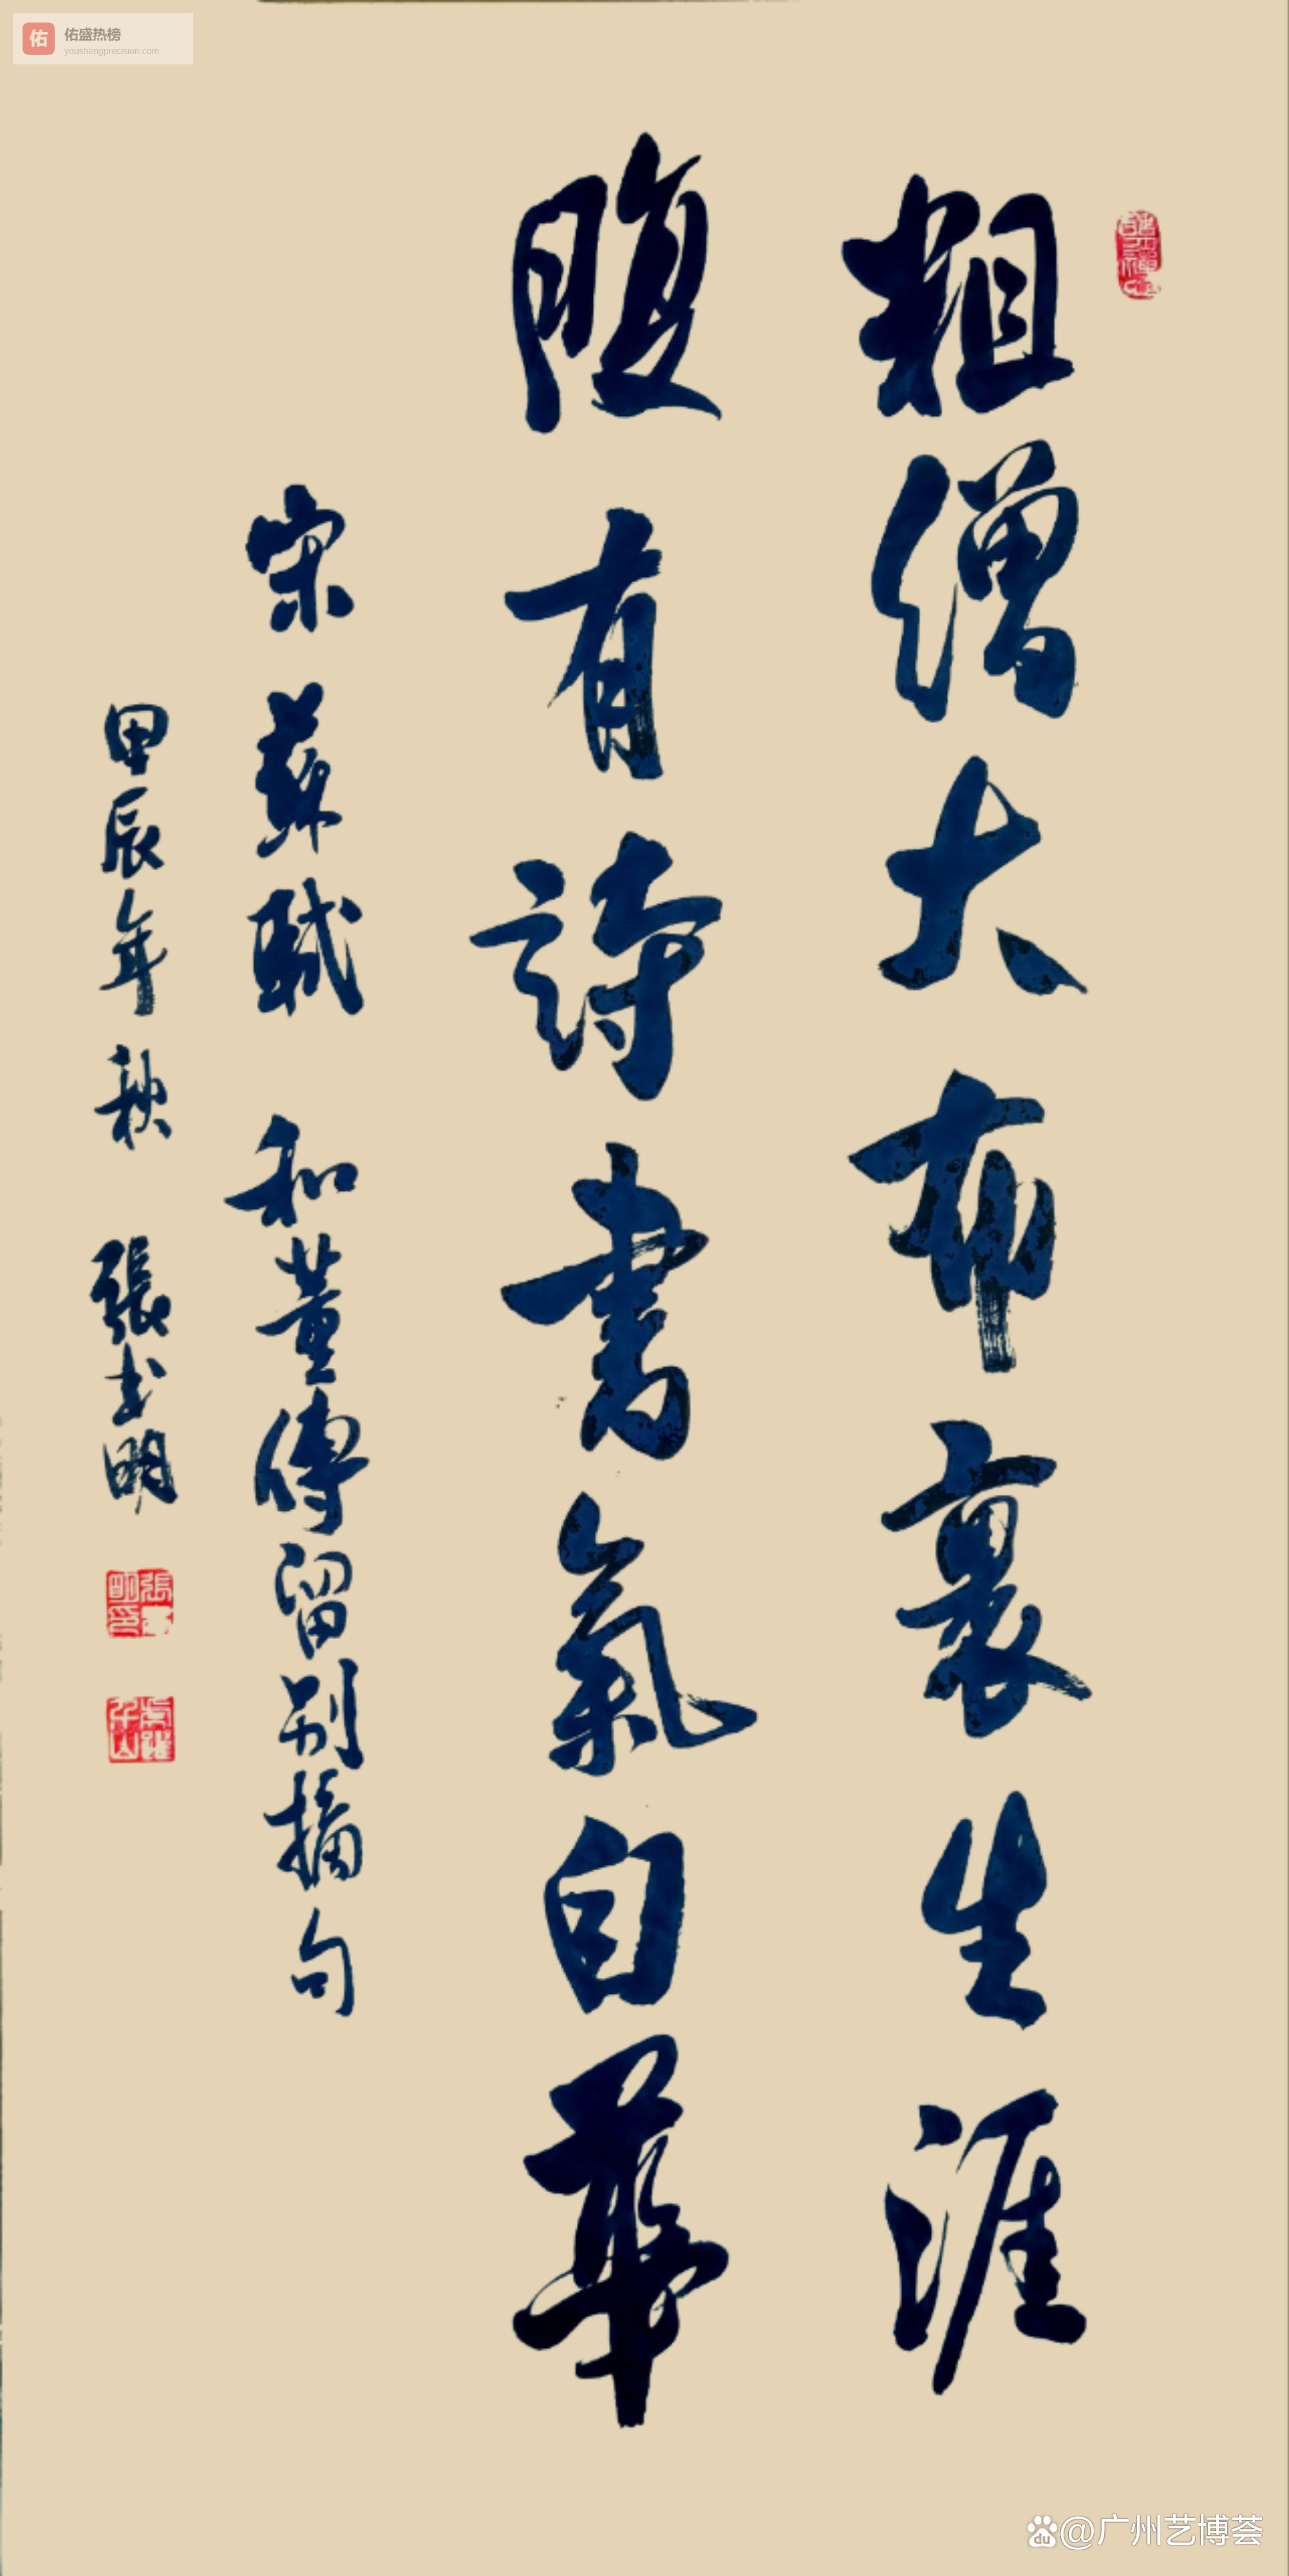 佑
佑盛热榜
youshengprecision.com
粗繒大布裹生涯
腹有詩書氣自華
宋蘇軾 和董傳留别摘句
甲辰年秋 張明
du @广州艺博荟